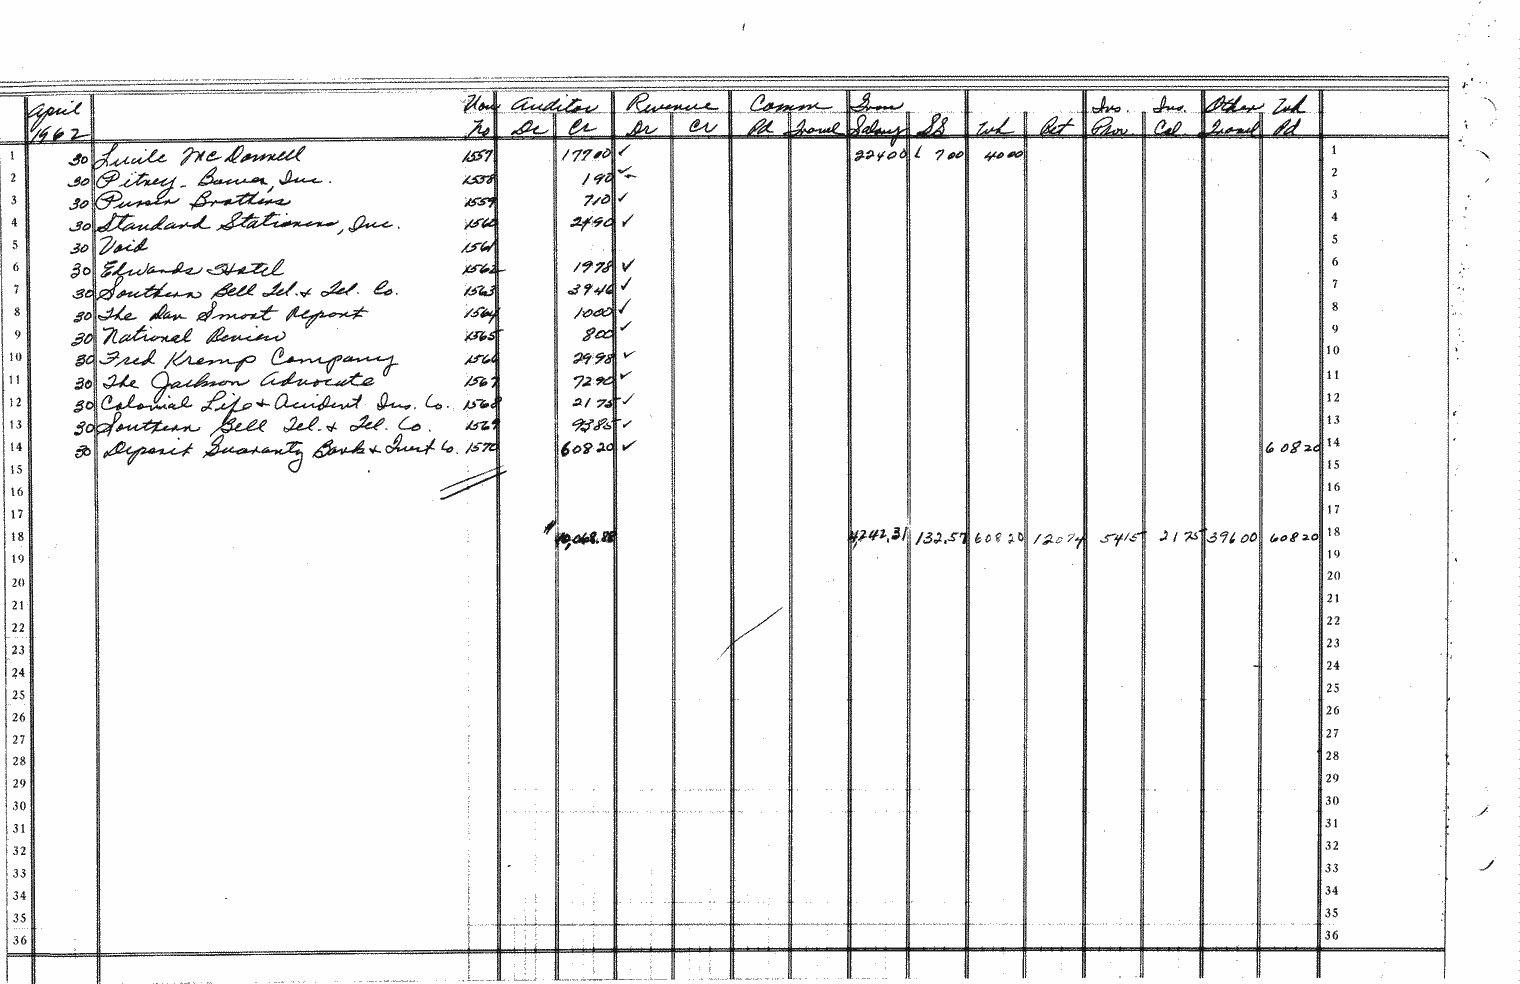 April Vou Auditor Revenue Comm Gross Ins. Ins. Other Wh
1962 No Dr Cr Dr Cr Pd Travel Salary SS Wh Ret Prov. Col. Travel Pd
1 30 Lucile McDonnell 1557 177 00 ✓ 224 00 7 00 40 00 1
2 30 Pitney-Bowes, Inc. 1558 1 90 ✓ 2
3 30 Brothers 1559 7 10 ✓ 3
4 30 Standard Stationers, Inc. 1560 24 90 ✓ 4
5 30 Void 1561 5
6 30 Edwards Hotel 1562 19 78 ✓ 6
7 30 Southern Bell Tel. & Tel. Co. 1563 39 46 ✓ 7
8 30 The Dan Smoot Report 1564 10 00 ✓ 8
9 30 National Review 1565 8 00 ✓ 9
10 30 Fred Kremp Company 1566 29 98 ✓ 10
11 30 The Jackson Advocate 1567 72 90 ✓ 11
12 30 Colonial Life & Accident Ins. Co. 1568 21 75 ✓ 12
13 30 Southern Bell Tel. & Tel. Co. 1569 93 85 ✓ 13
14 30 Deposit Guaranty Bank & Trust Co. 1570 608 20 ✓ 608 20 14
15 15
16 16
17 17
18 10,068.88 4,242.31 132.57 608 20 120 74 54 15 21 75 396 00 608 20 18
19 19
20 20
21 21
22 22
23 23
24 24
25 25
26 26
27 27
28 28
29 29
30 30
31 31
32 32
33 33
34 34
35 35
36 36